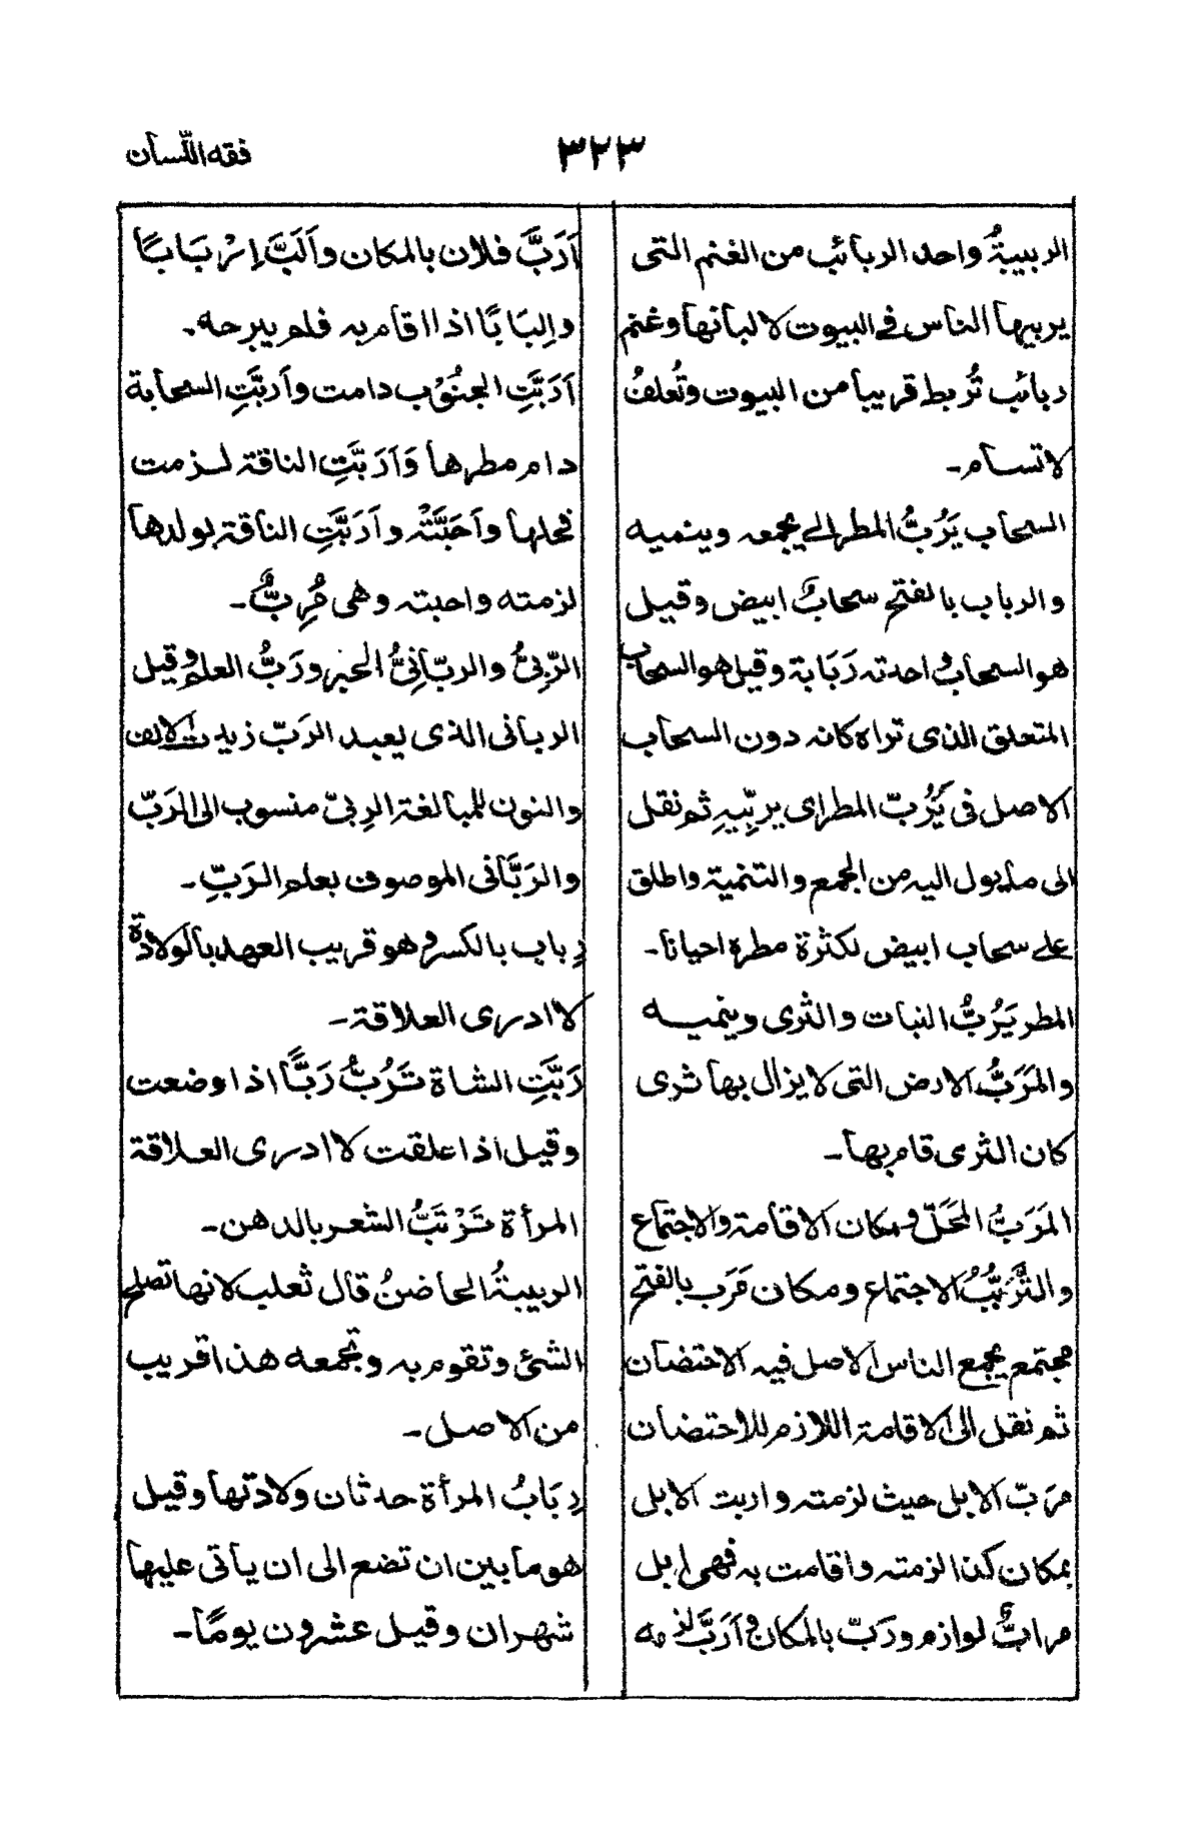 ٣٢٣
فقه اللّسان
الربيبةُ واحد الربائب من الغنم التى
يربيها الناس فى البيوت لالبانها وغنم
ربائب تُربط قريبا من البيوت وتُعلفُ
لاتسام۔
السحاب يَرُبُّ المطر اى يجمعه وينميه
والرباب بالفتح سحابٌ ابيض وقيل
هو السحاب واحدته رَبَابة وقيل هو السحاب
المتعلق الذى تراه كانه دون السحاب
الاصل فى يَرُبّ المطر اى يربِّيهِ ثم نقل
الى ما يول اليه من الجمع والتنمية واطلق
على سحاب ابيض لكثرة مطره احيانا۔
المطر يَرُبُّ النبات والثرى وينميه
والمَرَبُّ الارض التى لا يزال بها ثرى
كان الثرى قام بها۔
المَرَبُّ المَحَلّ ومكان الاقامة والاجتماع
والتَّرَبُّبُ الاجتماع ومكان مَرَب بالفتح
مجتمع يجمع الناس الاصل فيه الاحتضان
ثم نقل الى الاقامة اللازم للاحتضان
مرَبّ الابل حيث لزمته واربت الابل
بمكان كذا لزمته واقامت به فهى ابل
مرابٌّ لوازم ورَبّ بالمكان و اَرَبَّ لزمه
اَرَبَّ فلان بالمكان واَلَبَّ اِرْبَابًا
واِلبَابًا اذا اقام به فلم يبرحه۔
اَرَبَّتِ الجنُوْب دامت واَربَّتِ السحابة
دام مطرها وَاَرَبَّتِ الناقة لزمت
فحلها واَحَبَّتْه واَرَبَّتِ الناقة بولدها
لزمته واحبته وهى مُرِبٌّ۔
الرّبِىُّ والربّانِىُّ الحبر ورَبُّ العلم وقيل
الربانى الذى يعبد الرَبّ زيدت الالف
والنون للمبالغة الرِبىّ منسوب الى الرَبّ
والرَبَّانى الموصوف بعلم الرَبِّ۔
رِباب بالكسر وهو قريب العهد بالولادة
لا ادرى العلاقة۔
رَبَّتِ الشاة تَرُبُّ رَبًّا اذا وضعت
وقيل اذا علقت لا ادرى العلاقة
المرأة تَرْتَبُّ الشعر بالدهن۔
الربيبةُ الحاضنُ قال ثعلب لانها تصلح
الشئ وتقوم به وتجمعه هذا قريب
من الاصل۔
رِبَابُ المرأة حدثان ولادتها وقيل
هو ما بين ان تضع الى ان ياتى عليها
شهران وقيل عشرون يومًا۔